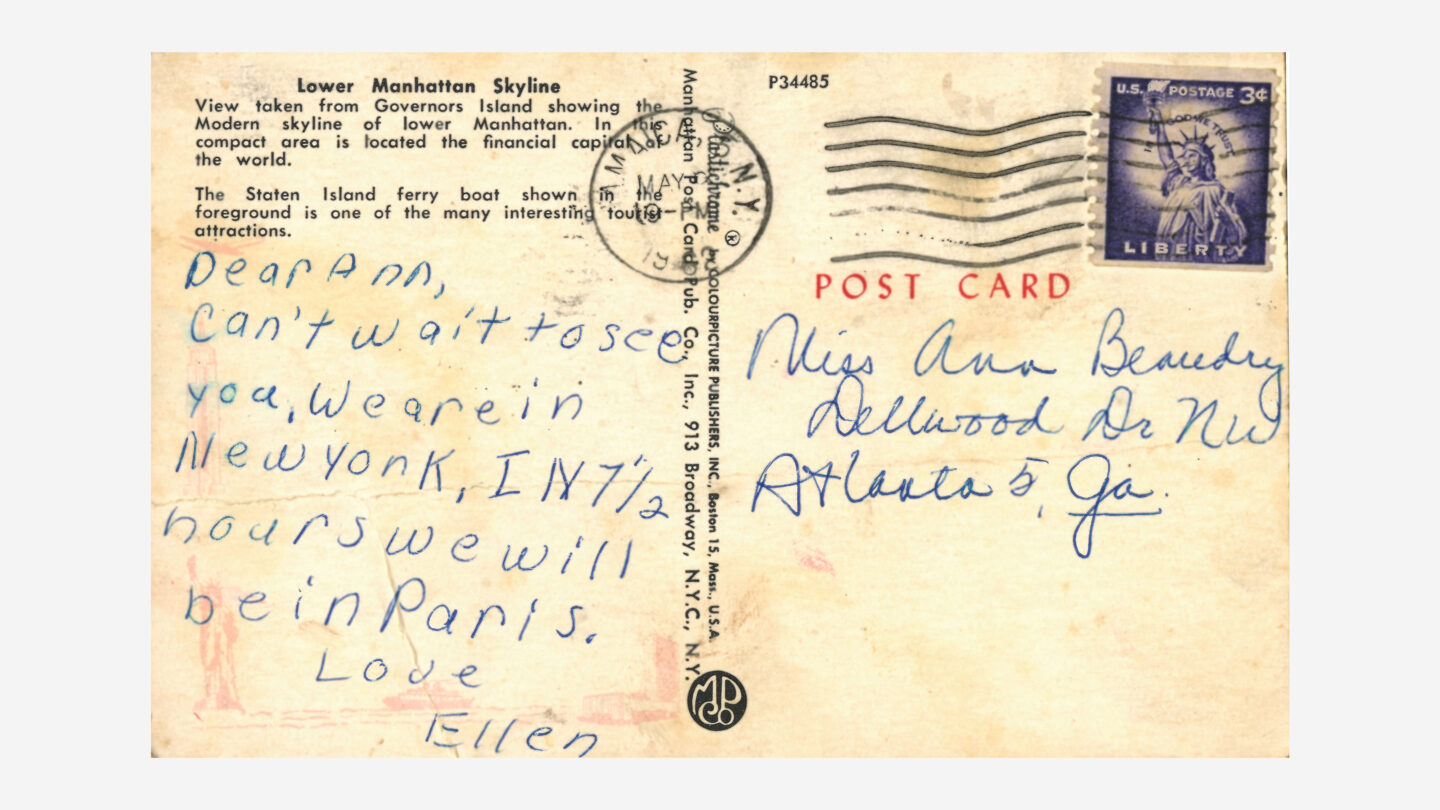 Lower Manhattan Skyline
View taken from Governors Island showing the
Modern skyline of lower Manhattan. In this
compact area is located the financial capital of
the world.
The Staten Island ferry boat shown in the
foreground is one of the many interesting tourist
attractions.
Dear Ann,
Can't wait to see
you, We are in
New York, IN 7 1/2
hours we will
be in Paris.
Love
Ellen
Manhattan Post Card Pub. Co., Inc., 913 Broadway, N.Y.C., N.Y.
Plastichrome ® by COLOURPICTURE PUBLISHERS, INC., Boston 15, Mass., U.S.A.
MPCo
P34485
N.Y.
MAY
PM
19
U.S. POSTAGE 3¢
IN GOD WE TRUST
LIBERTY
POST CARD
Miss Ann Beaudry
Dellwood Dr NW
Atlanta 5, Ga.